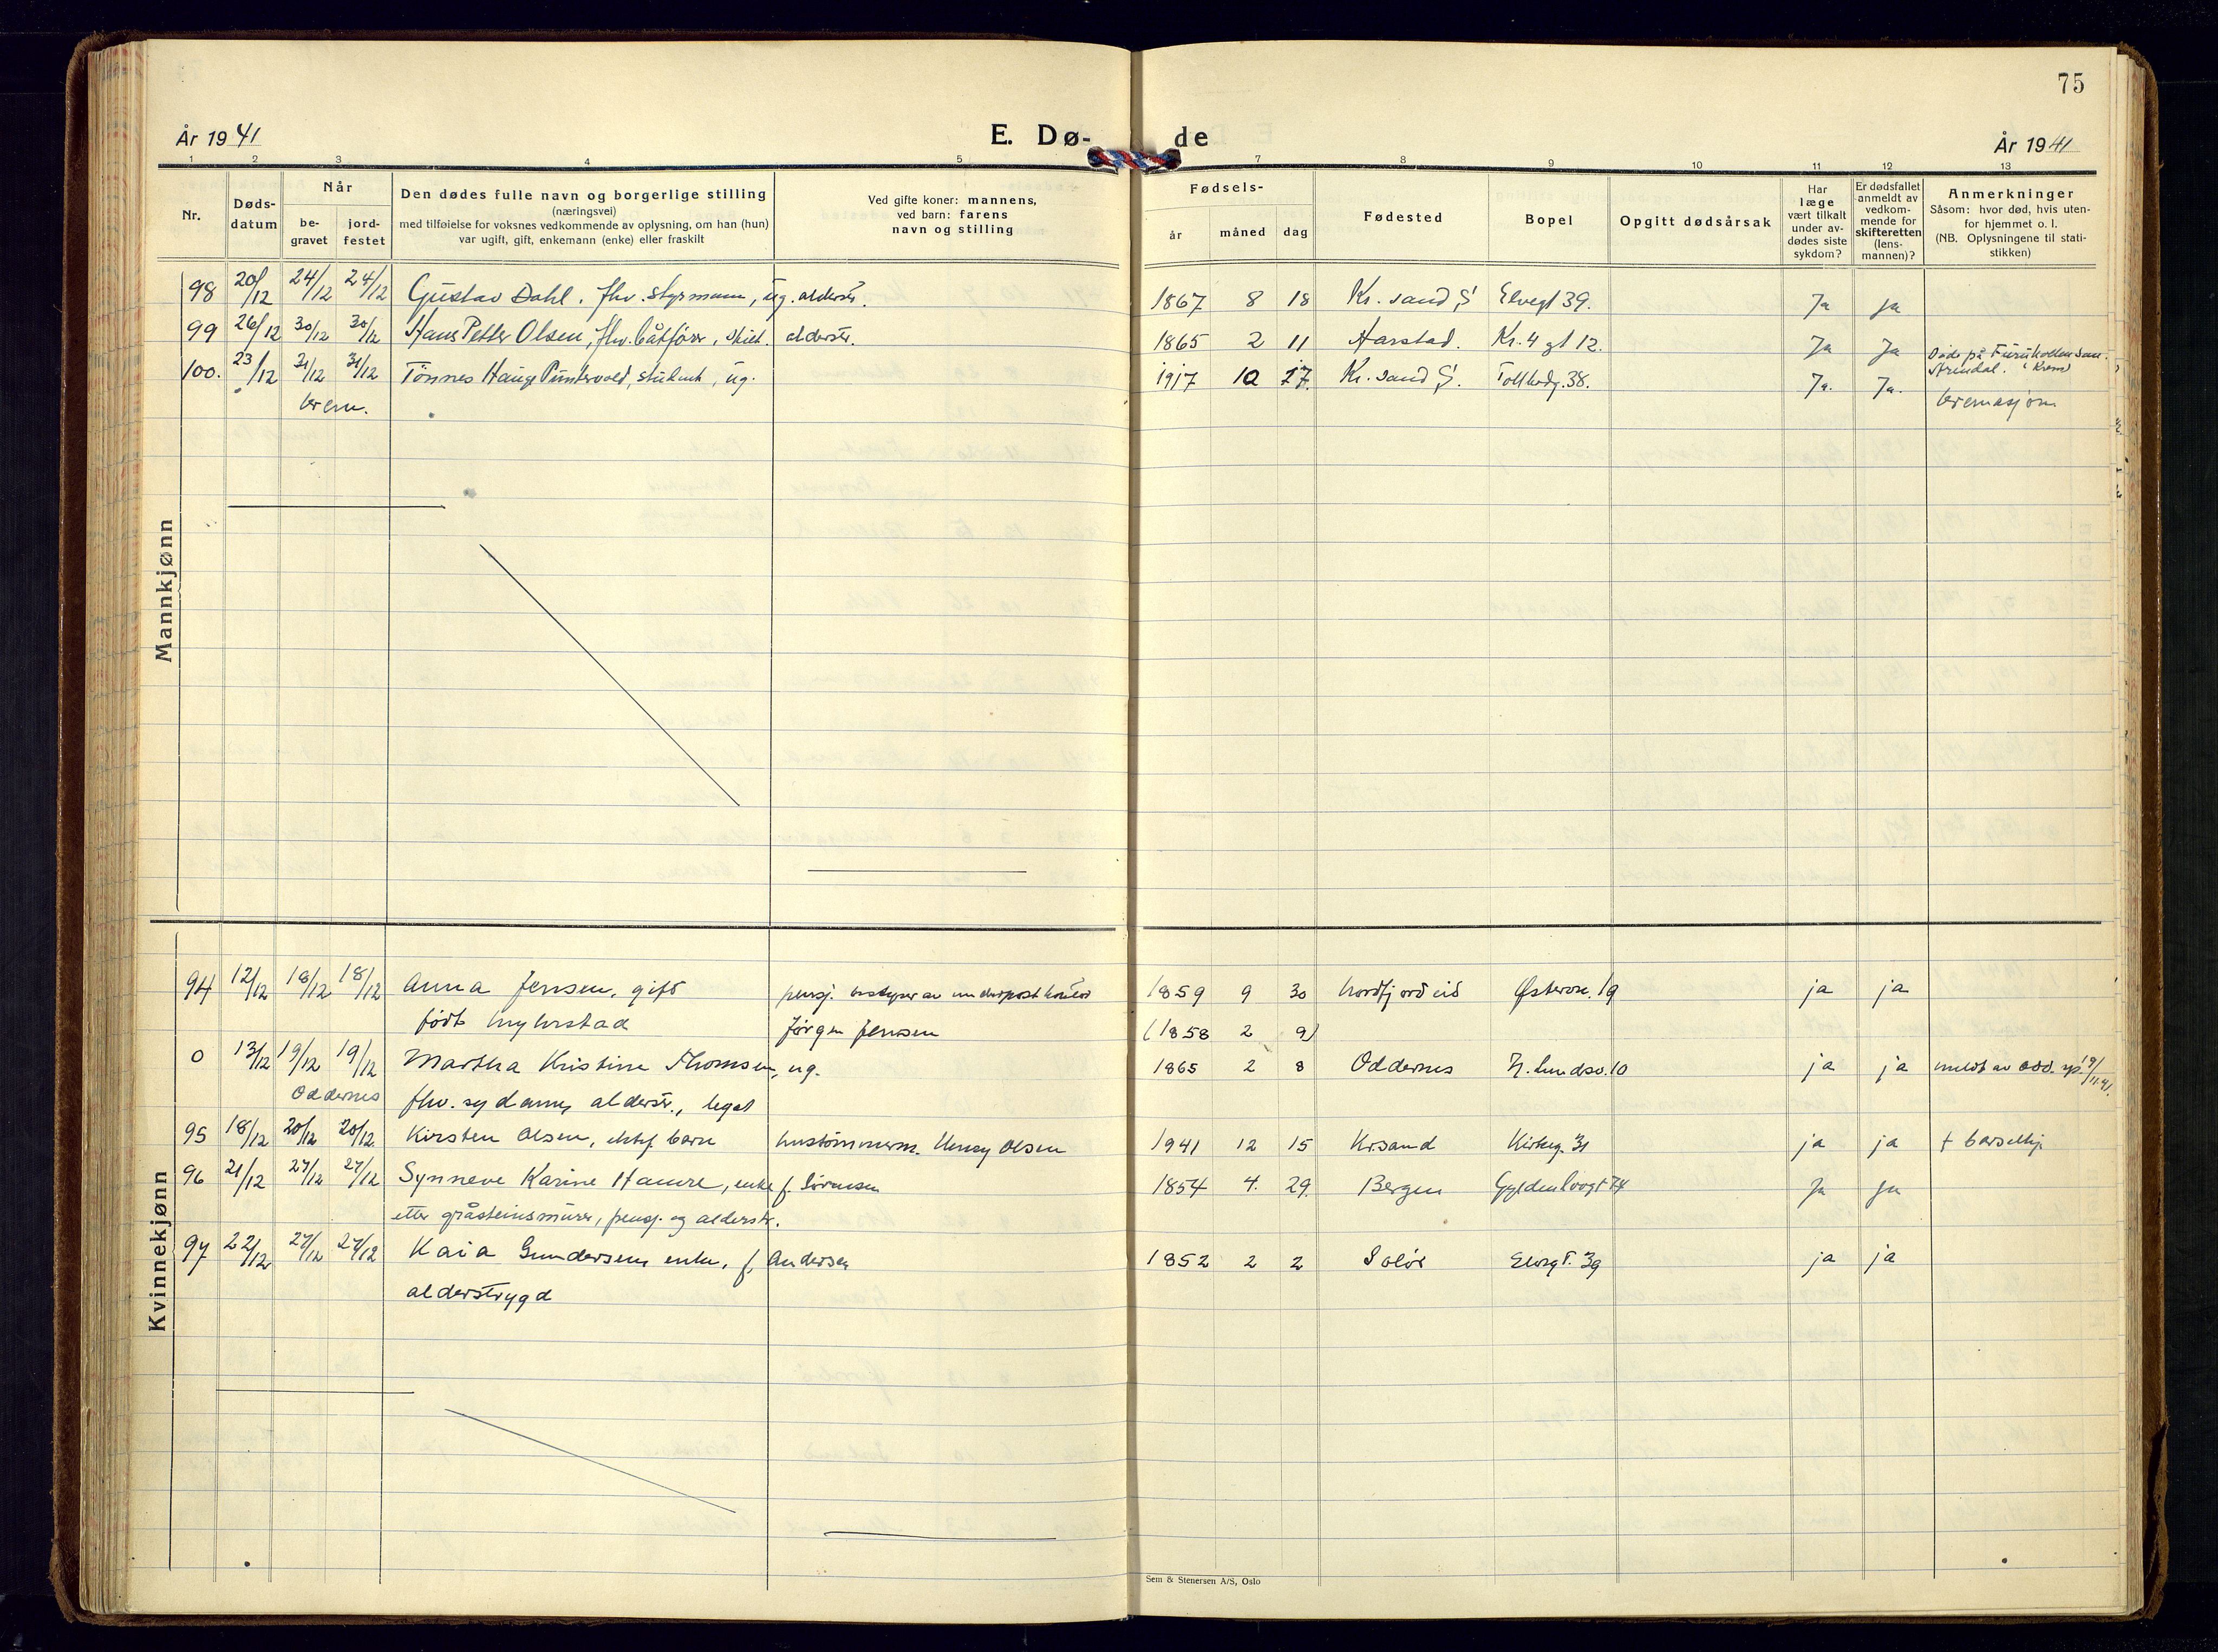 75
År 1941
E. Dø-
de
År 1941
1 2 3 4 5 7 8 9 10 11 12 13
Nr.
Døds-
datum
Når
be-
gravet
jord-
festet
Den dødes fulle navn og borgerlige stilling
(næringsvei)
med tilføielse for voksnes vedkommende av oplysning, om han (hun)
var ugift, gift, enkemann (enke) eller fraskilt
Ved gifte koner: mannens,
ved barn: farens
navn og stilling
Fødsels-
år måned dag
Fødested
Bopel
Opgitt dødsårsak
Har
læge
vært tilkalt
under av-
dødes siste
sykdom?
Er dødsfallet
anmeldt av
vedkom-
mende for
skifteretten
(lens-
mannen)?
Anmerkninger
Såsom: hvor død, hvis uten-
for hjemmet o. l.
(NB. Oplysningene til stati-
stikken)
Mannkjønn
98 20/12 24/12 24/12 Gustav Dahl, fhv. styrmann, ug. alderstr. 1867 8 18 Kr. sand S Elvegt 39. Ja ja
99 26/12 30/12 30/12 Hans Petter Olsen, fhv. båtfører, skilt. alderstr. 1865 2 11 Harstad. Kr. 4 gt 12. Ja Ja
100. 23/12 31/12 31/12 Tönnes Hauge Puntervold, student, ug. 1917 10 17. Kr. sand S. Tollbodg. 38. Ja. Ja. Døde på Furukollen San.
Arendal. (Krem)
krem.
kremasjon
Kvinnekjønn
94 12/12 18/12 18/12 Anna Jensen, gift pensj. bestyrer av underpostkontor 1859 9 30 Nordfjordeid Østerve. 19 ja ja
født Myhrstad Jørgen Jensen (1858 2 9)
0 13/12 19/12 19/12 Martha Kristine Thomsen, ug. 1865 2 8 Oddernes N. Lundsv. 10 ja ja meldt av Odd. sp.
Oddernes fhv. sydame, alderstr., legat
95 18/12 20/12 20/12 Kirsten Olsen, ektef. barn hustömmerm. Henry Olsen 1941 12 15 Kr.sand Kirkeg. 31 ja ja † barselhj.
96 21/12 27/12 27/12 Synneve Karine Hamre, enke f. Sørensen 1854 4. 29. Bergen Gyldenløvsgt 74 Ja Ja
etter gråsteinsmurer, pensj. og alderstr.
97 22/12 27/12 27/12 Kaia Gundersen, enke, f. Andersen 1852 2 2 Solør Elvegt. 39 ja ja
alderstrygd
Sem & Stenersen A/S, Oslo